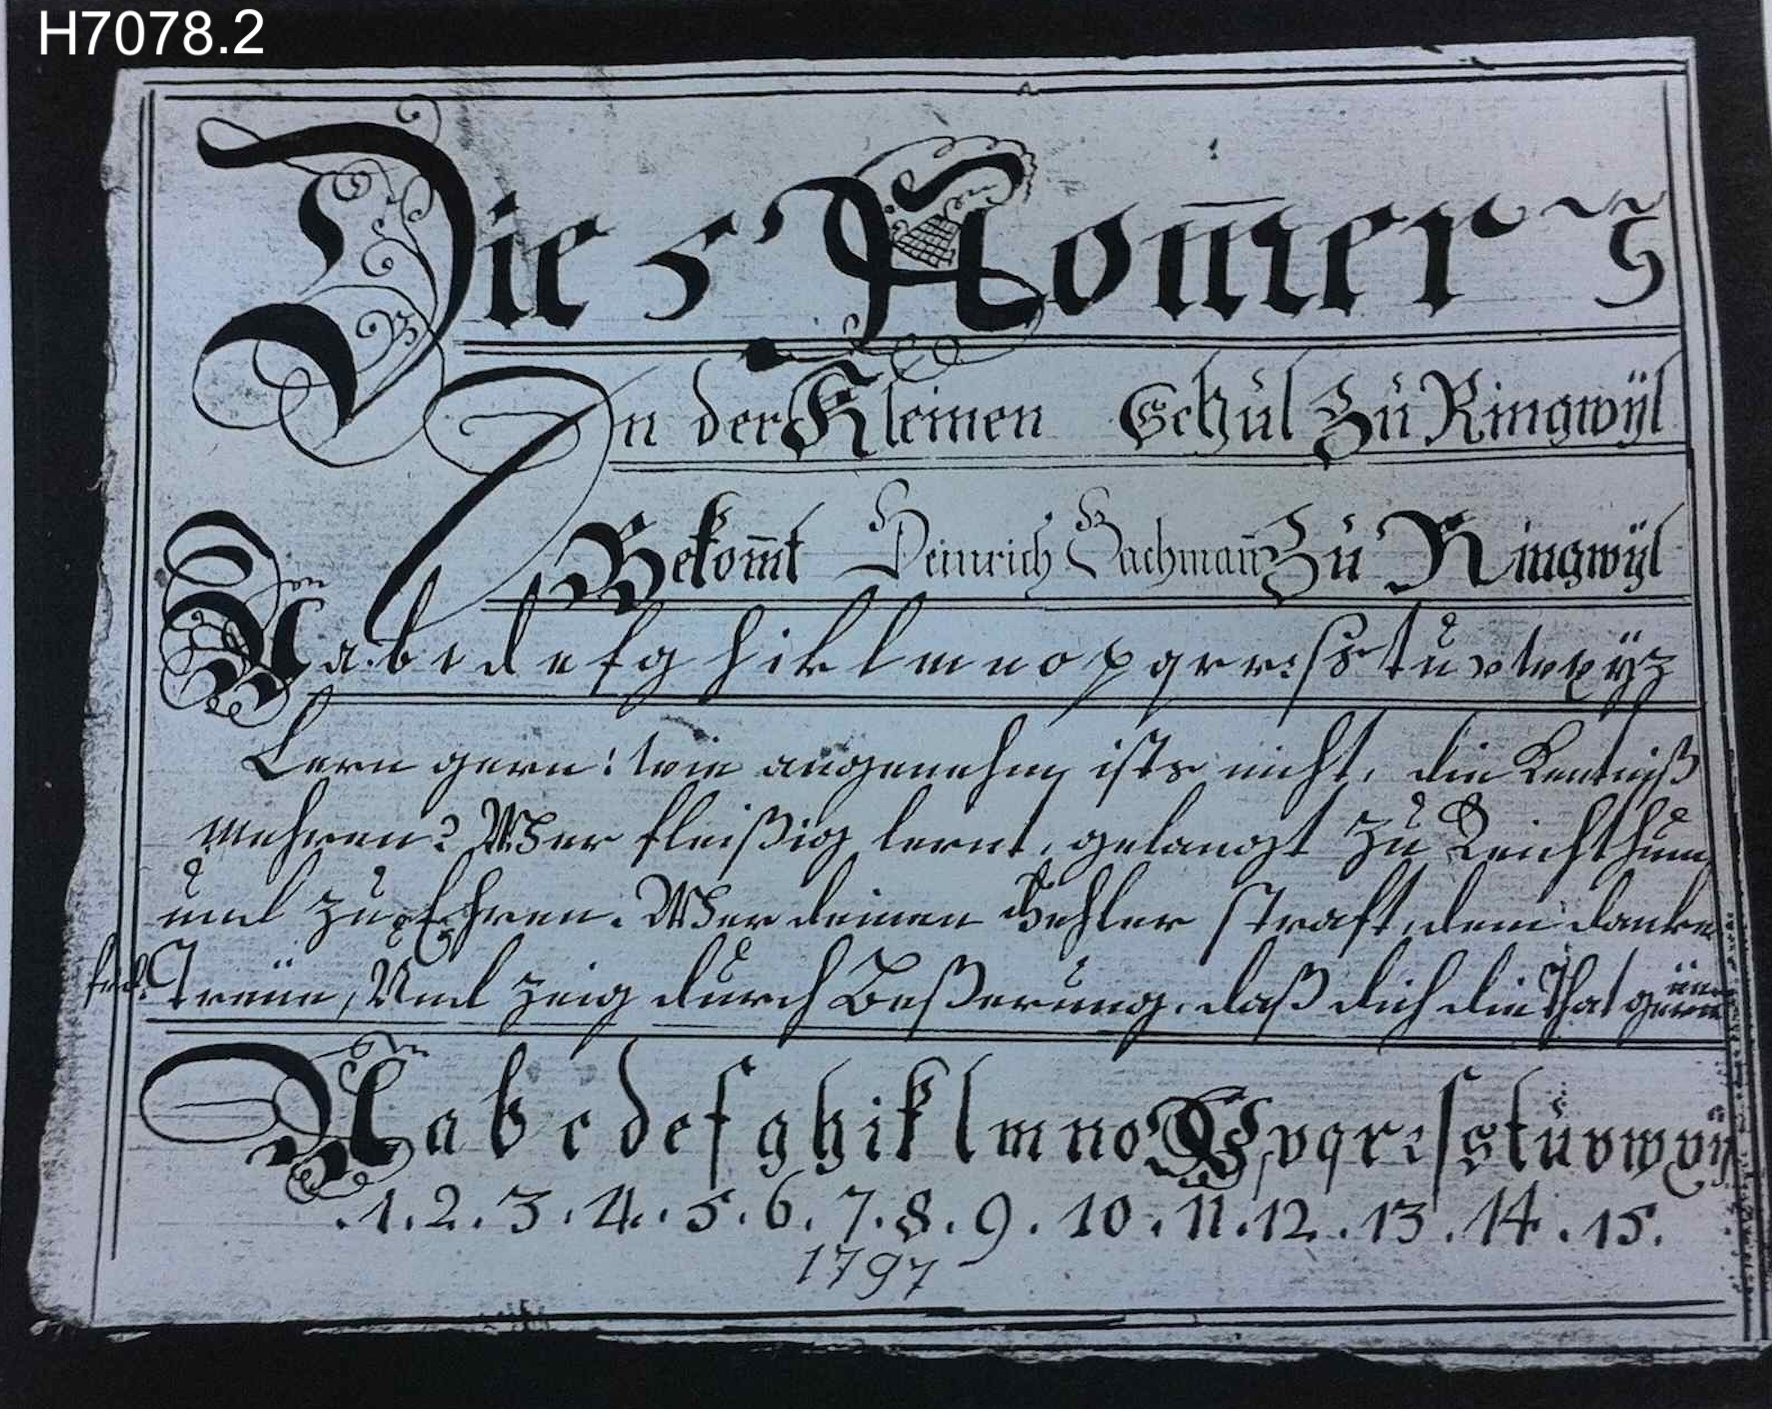 H7078.2
Die 5 Nom̅er 5
In der Kleinen Schŭl Zŭ Ringwÿl
Bekom̅t Heinrich Bachman̅ Zŭ Ringwÿl
A a b c d e f g h i k l m n o p q r r s ß t ŭ v w x ÿ z
Lern gern! wie angenehm ists nicht, die Kentniß
mehren? Wer fleißig lernt, gelangt zŭ Reichthŭm
und zŭ Ehren. Wer deinen Fehler straft, dem danke
für Treüe, Und zeig dŭrch Beßerŭng, daß dich die That
A a b c d e f g h i k l m n o p q r s s t ŭ v w x ÿ
.1.2.3.4.5.6.7.8.9.10.11.12.13.14.15.
1797